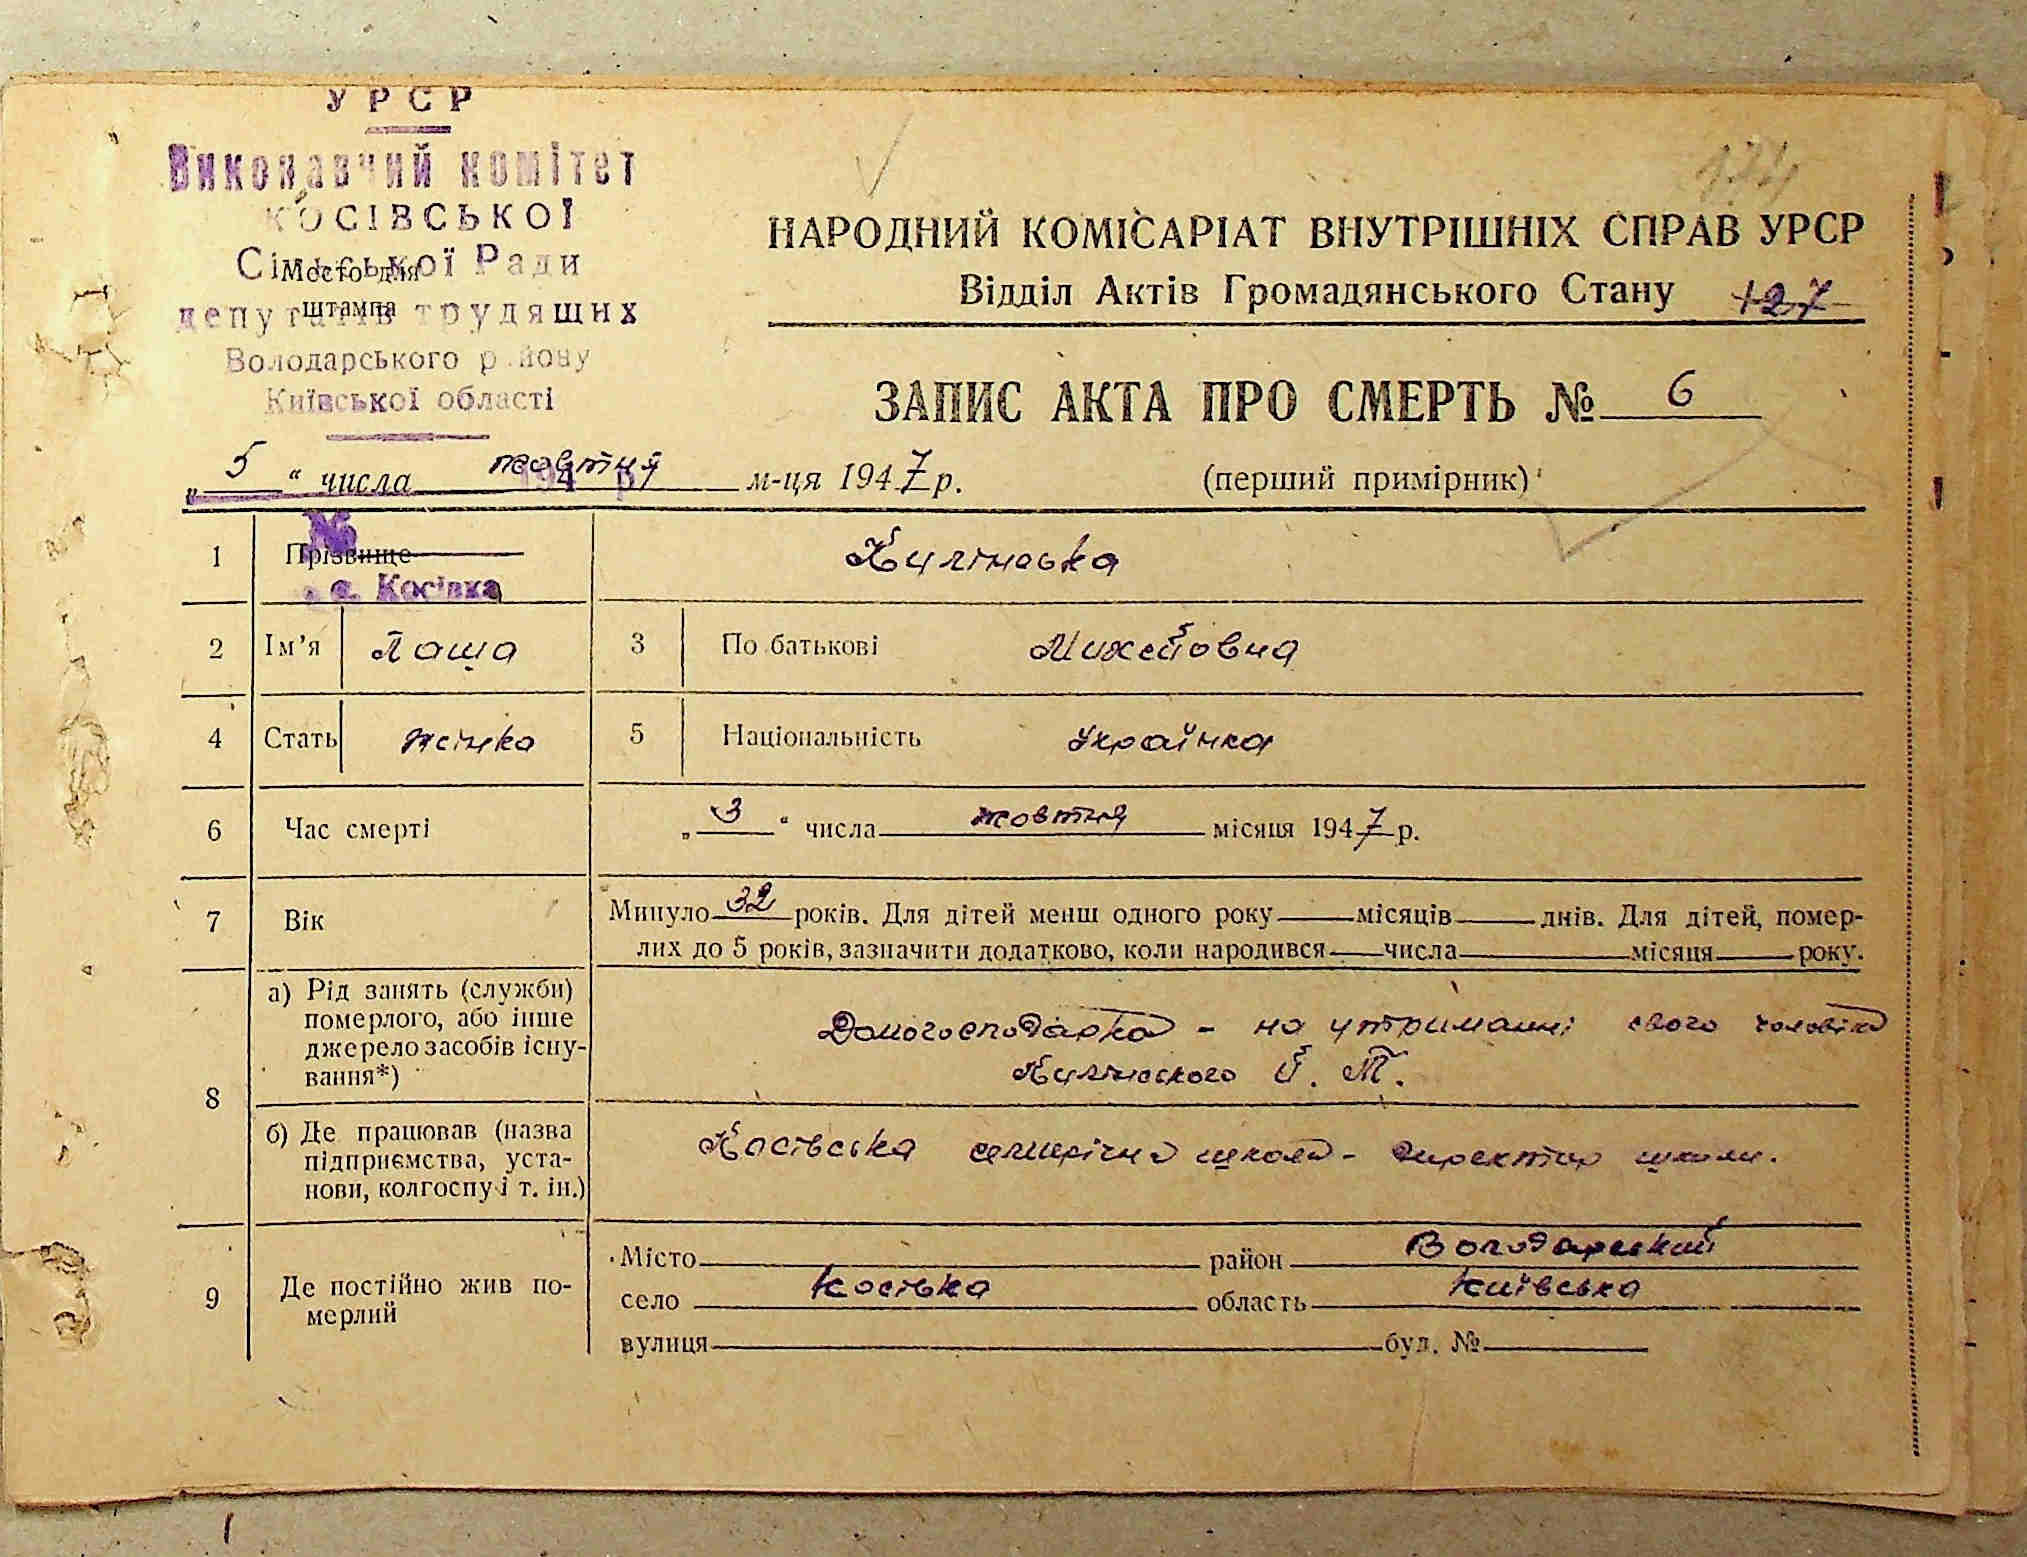 УРСР
Виконавчий комітет
КОСІВСЬКОЇ
Сільської Ради
депутатів трудящих
Володарського району
Київської області
Место для
штампа
НАРОДНИЙ КОМІСАРІАТ ВНУТРІШНІХ СПРАВ УРСР
Відділ Актів Громадянського Стану 127
ЗАПИС АКТА ПРО СМЕРТЬ № 6
„5“ числа жовтня м-ця 1947 р. (перший примірник)
194 р.
№
с. Косівка
1 Прізвище Кулінська
2 Ім'я Паша 3 По батькові Михейовна
4 Стать жінка 5 Національність Українка
6 Час смерті „3“ числа жовтня місяця 1947 р.
7 Вік Минуло 32 років. Для дітей менш одного року місяців днів. Для дітей, помер-
лих до 5 років, зазначити додатково, коли народився числа місяця року.
8 а) Рід занять (служби)
померлого, або інше
джерело засобів існу-
вання*)
Домогосподарка - на утриманні свого чоловіка
Кулінского Й. Т.
б) Де працював (назва
підприємства, уста-
нови, колгоспу і т. ін.)
Косівська семирічна школа - директор школи.
9 Де постійно жив по-
мерлий
Місто район Володарський
село Косівка область Київська
вулиця буд. №